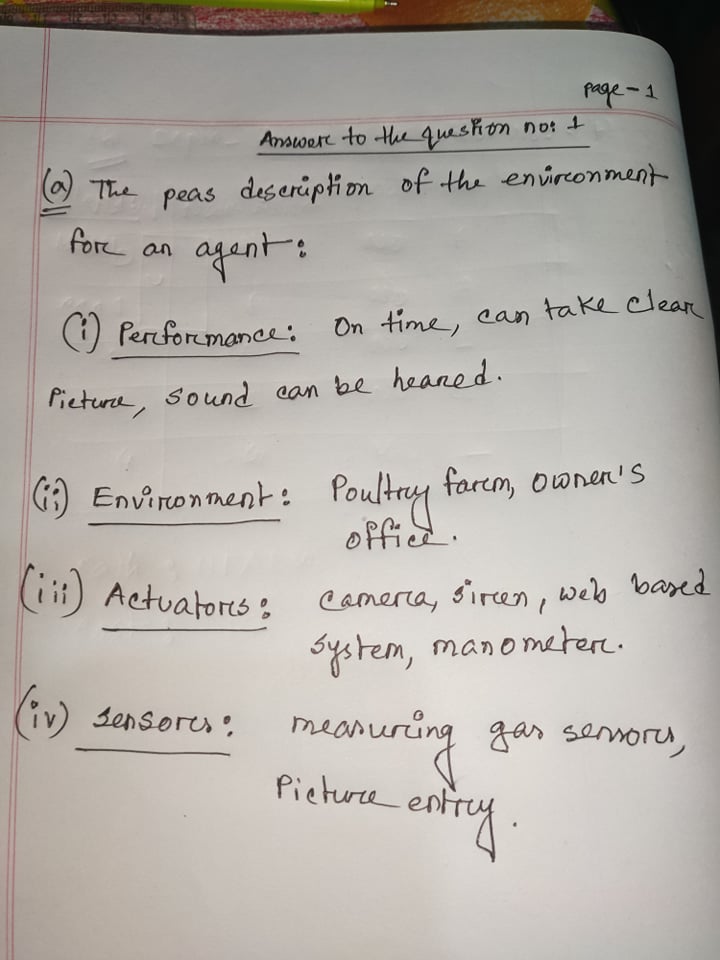 Page - 1
Answer to the question no: 1
(a) The peas description of the environment
for an agent:
(i) Performance: On time, can take clear
Picture, sound can be heared.
(ii) Environment: Poultry farm, owner's
office.
(iii) Actuators: camera, siren, web based
system, manometer.
(iv) sensors: measuring gas sensors,
Picture entry.